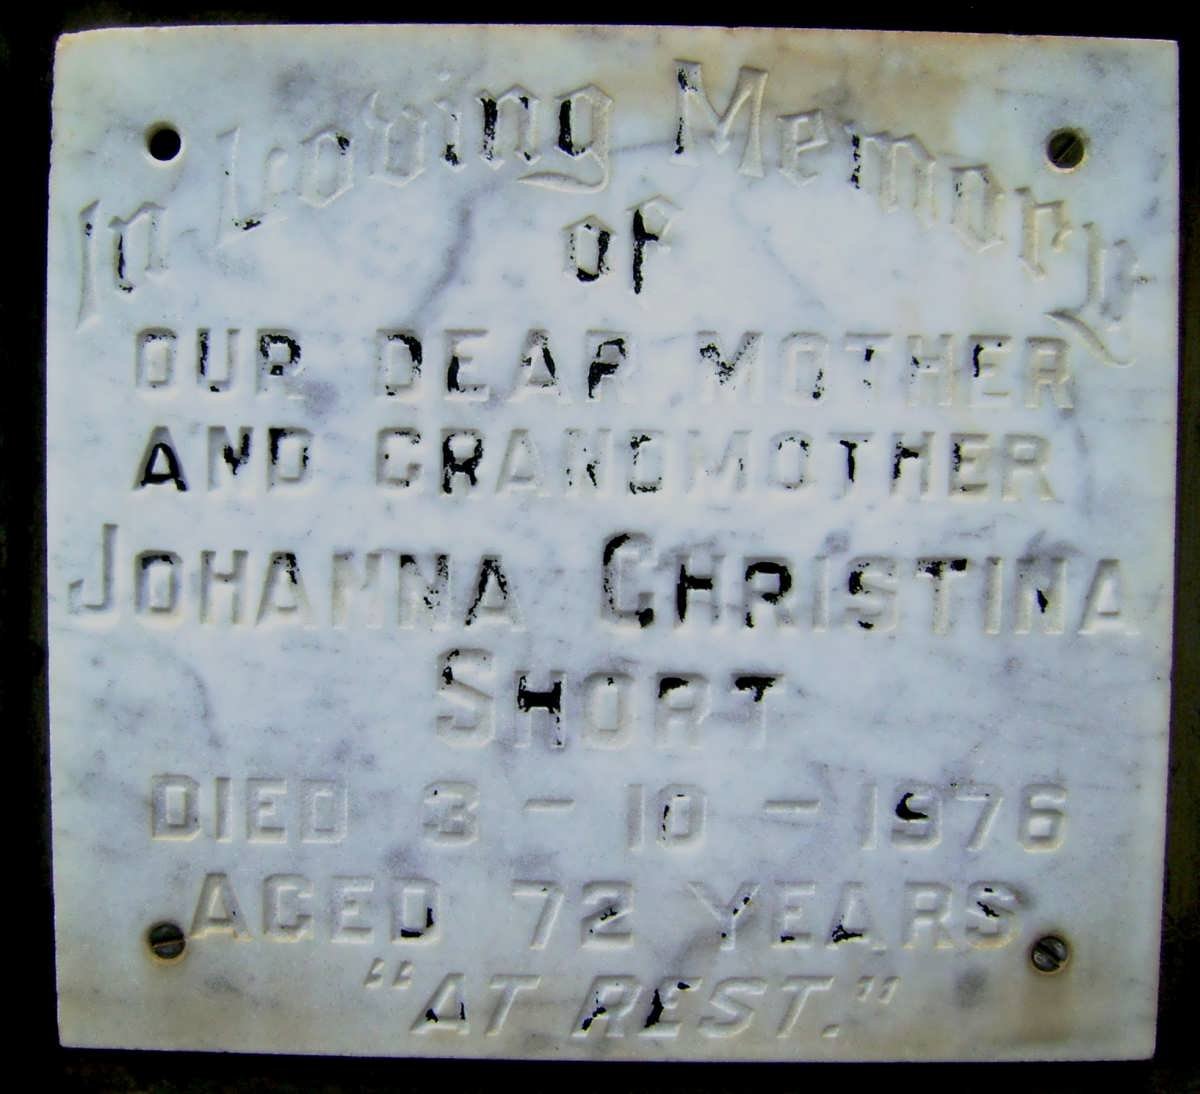 In Loving Memory
of
OUR DEAR MOTHER
AND GRANDMOTHER
JOHANNA CHRISTINA
SHORT
DIED 3 - 10 - 1976
AGED 72 YEARS
"AT REST."